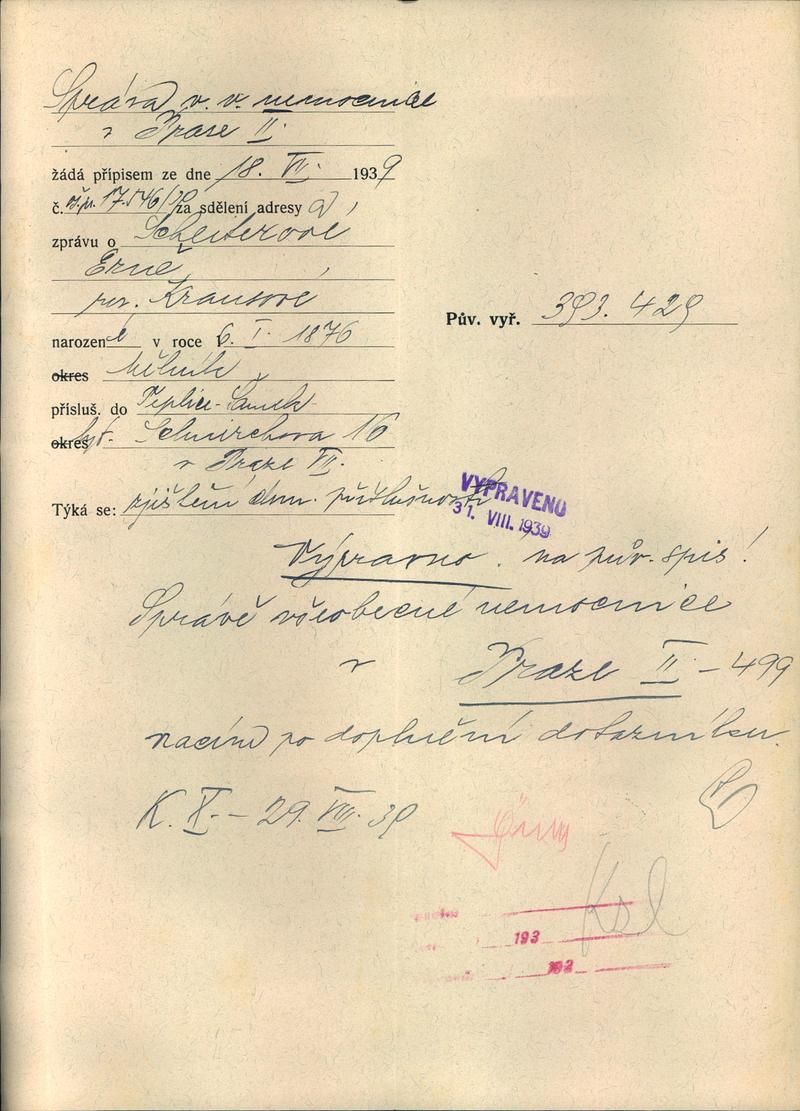 Správa v. v. nemocnice
v Praze II.
žádá přípisem ze dne 18. VII. 1939
č. 17.546/39 za sdělení adresy a
zprávu o Scheiterové
Erně,
roz. Krausové
narozené v roce 6. I. 1876
okres Mělník
přísluš. do Teplice-Šanov
okres byt. Schnirchova 16
v Praze VII.
Týká se: zjištění dom. příslušnosti
Pův. vyř. 393.429
VYPRAVENO
31. VIII. 1939
Vypraveno na pův. spis!
Správě všeobecné nemocnice
v Praze II - 499
vracím po doplnění dotazníku.
K. X. - 29. VIII. 39
193
193